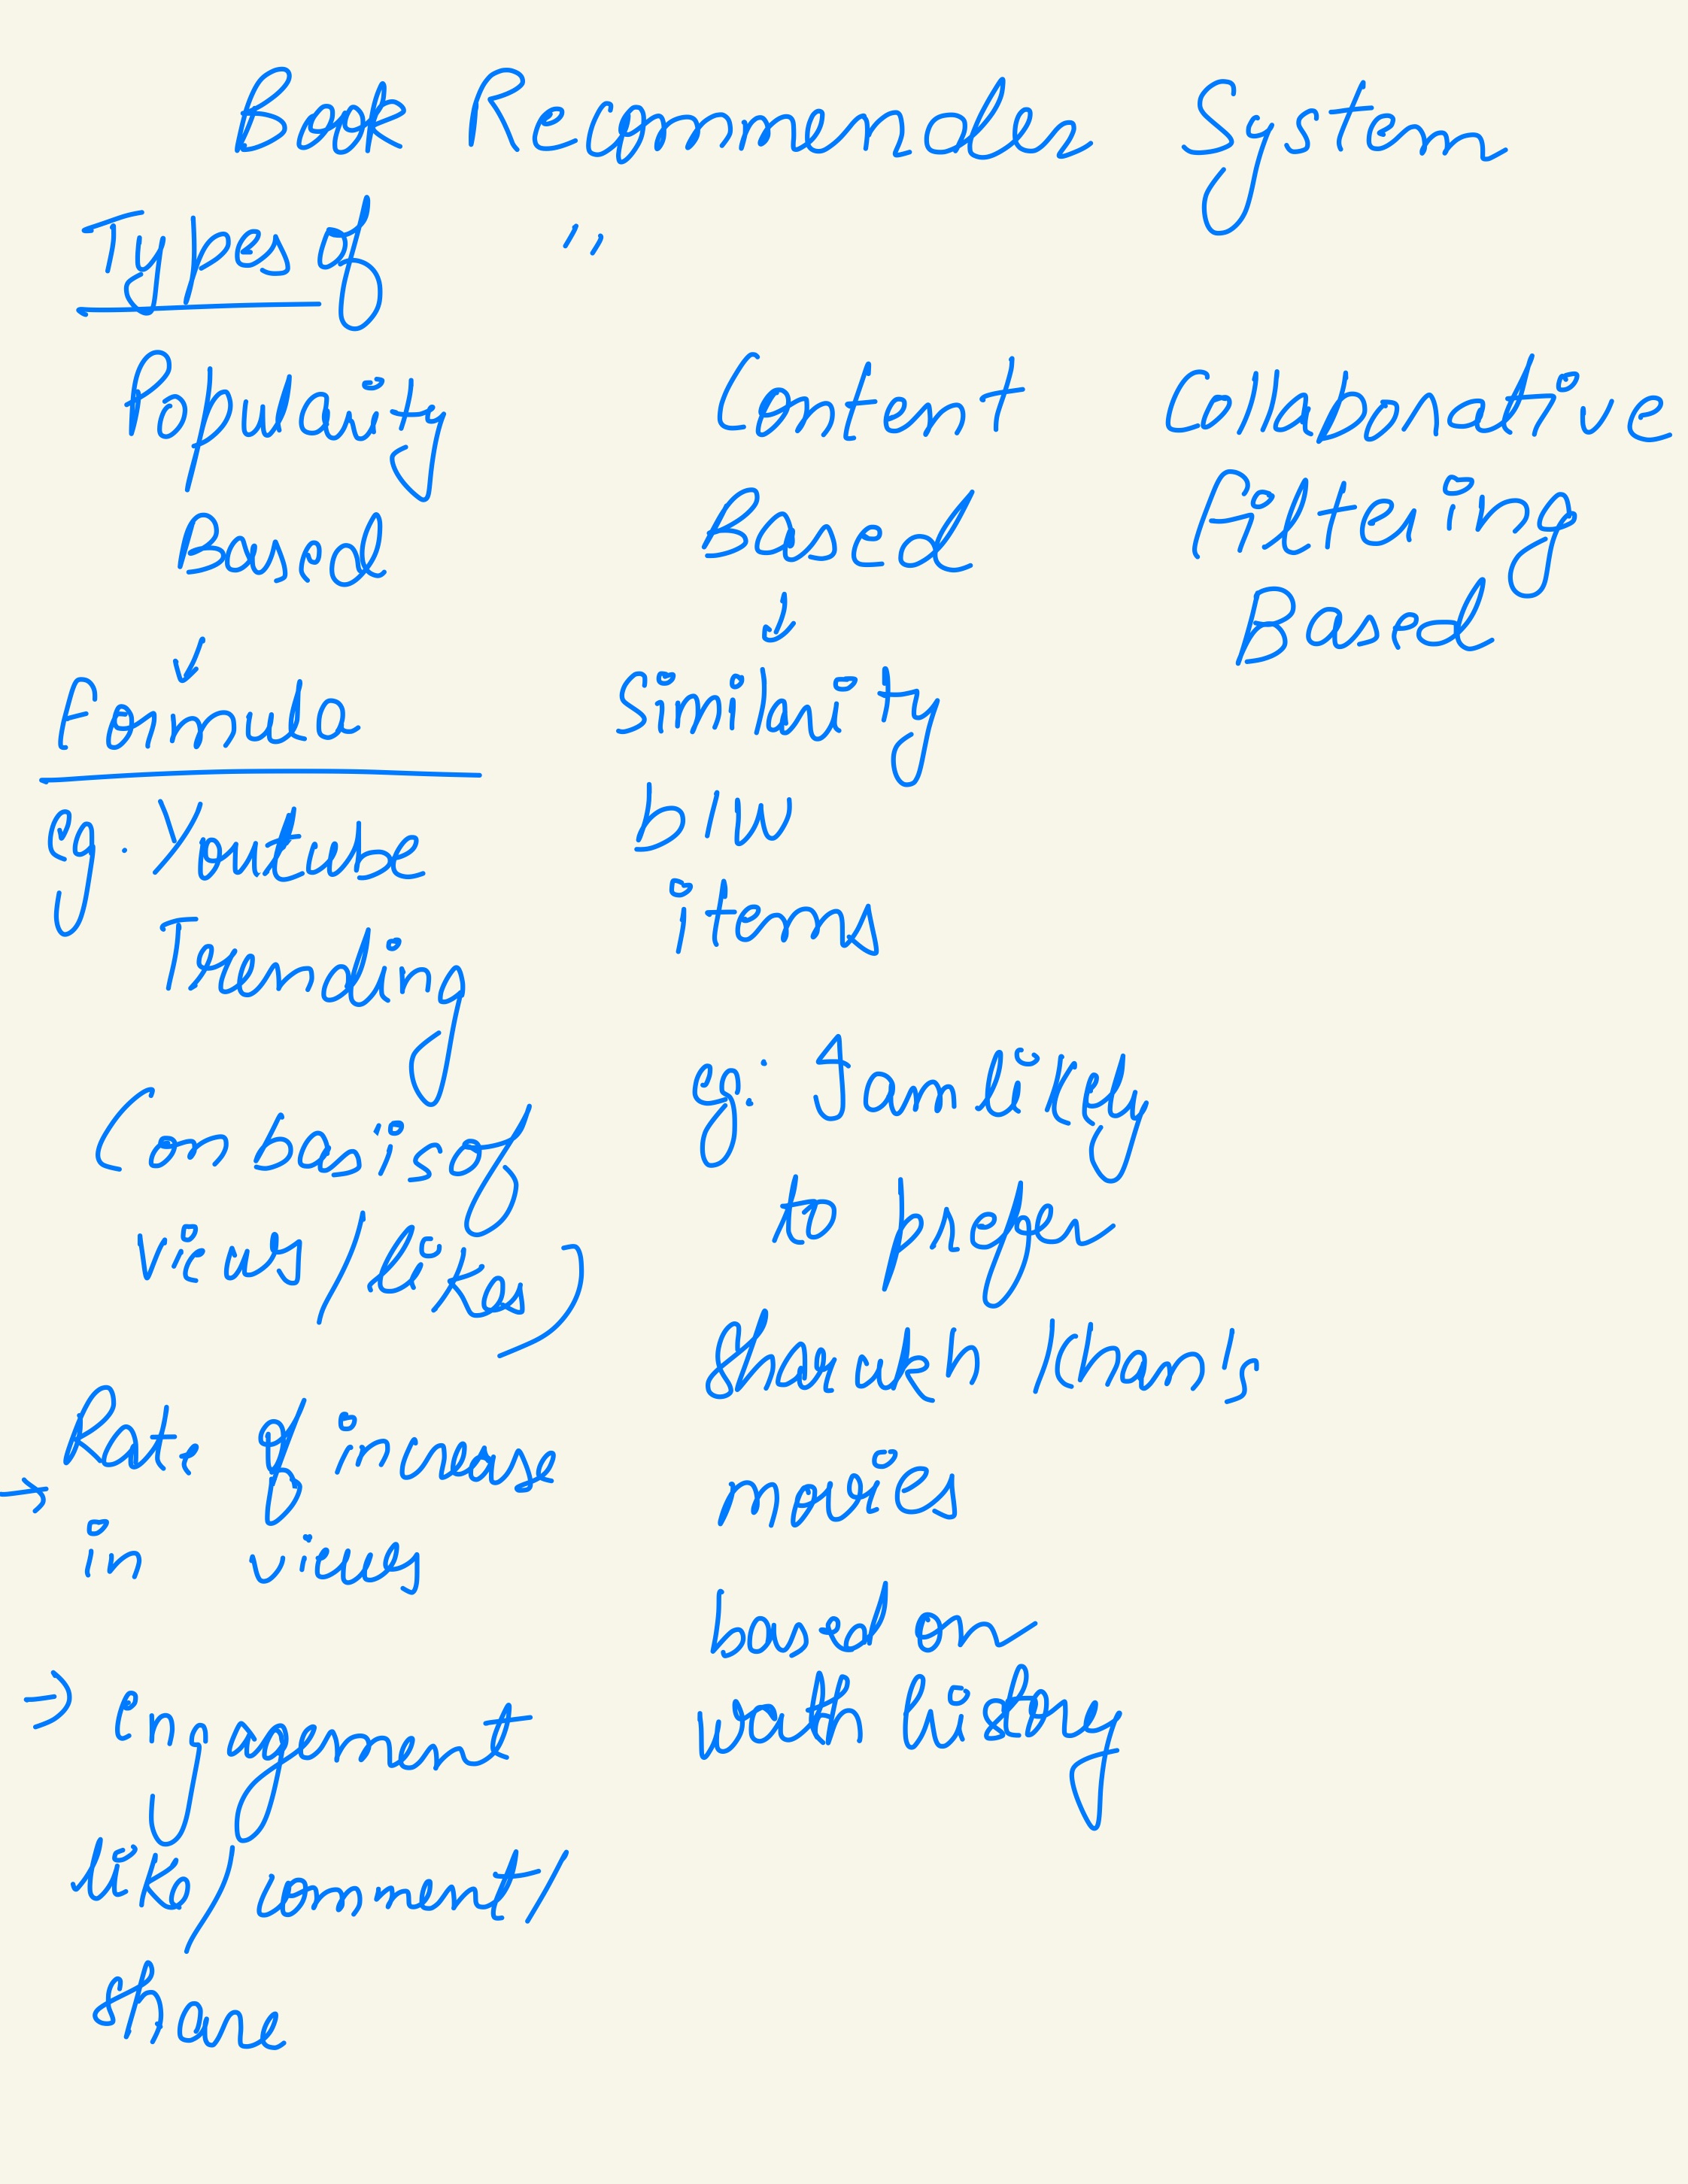 Book Recommender System
Types of "
Popularity
Based
Formula
eg. Youtube
Trending
(on basis of
views/likes)
→ Rate of increase
in views
→ engagement
like/comment/
share
Content
Based
↓
Similarity
b/w
items
eg: I am likely
to prefer
Sharukh Khan's
movies
based on
watch history
Collaborative
Filtering
Based